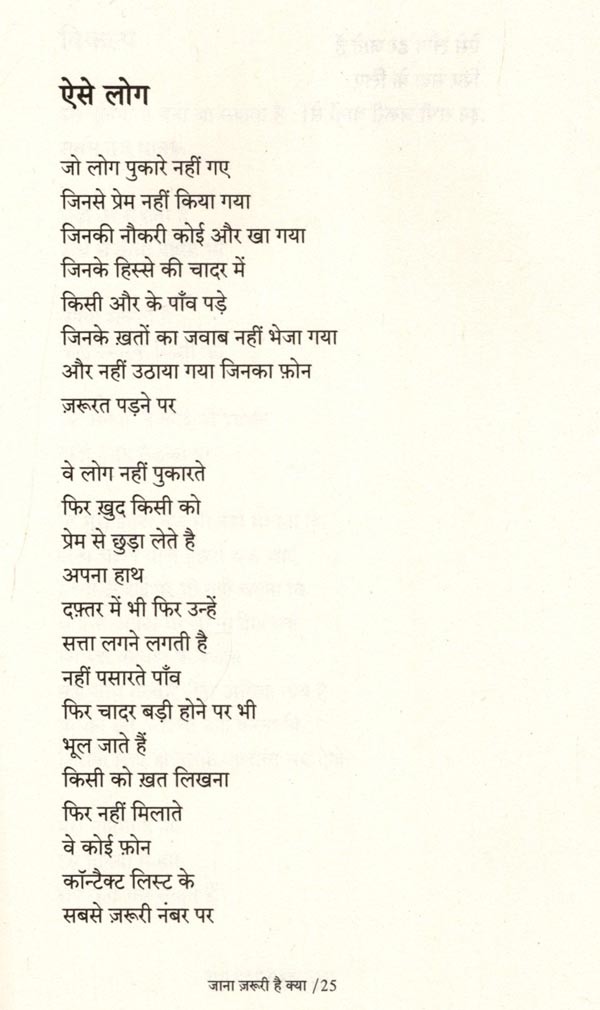 ऐसे लोग
जो लोग पुकारे नहीं गए
जिनसे प्रेम नहीं किया गया
जिनकी नौकरी कोई और खा गया
जिनके हिस्से की चादर में
किसी और के पाँव पड़े
जिनके ख़तों का जवाब नहीं भेजा गया
और नहीं उठाया गया जिनका फ़ोन
ज़रूरत पड़ने पर
वे लोग नहीं पुकारते
फिर ख़ुद किसी को
प्रेम से छुड़ा लेते है
अपना हाथ
दफ़्तर में भी फिर उन्हें
सत्ता लगने लगती है
नहीं पसारते पाँव
फिर चादर बड़ी होने पर भी
भूल जाते हैं
किसी को ख़त लिखना
फिर नहीं मिलाते
वे कोई फ़ोन
कॉन्टैक्ट लिस्ट के
सबसे ज़रूरी नंबर पर
जाना ज़रूरी है क्या /25